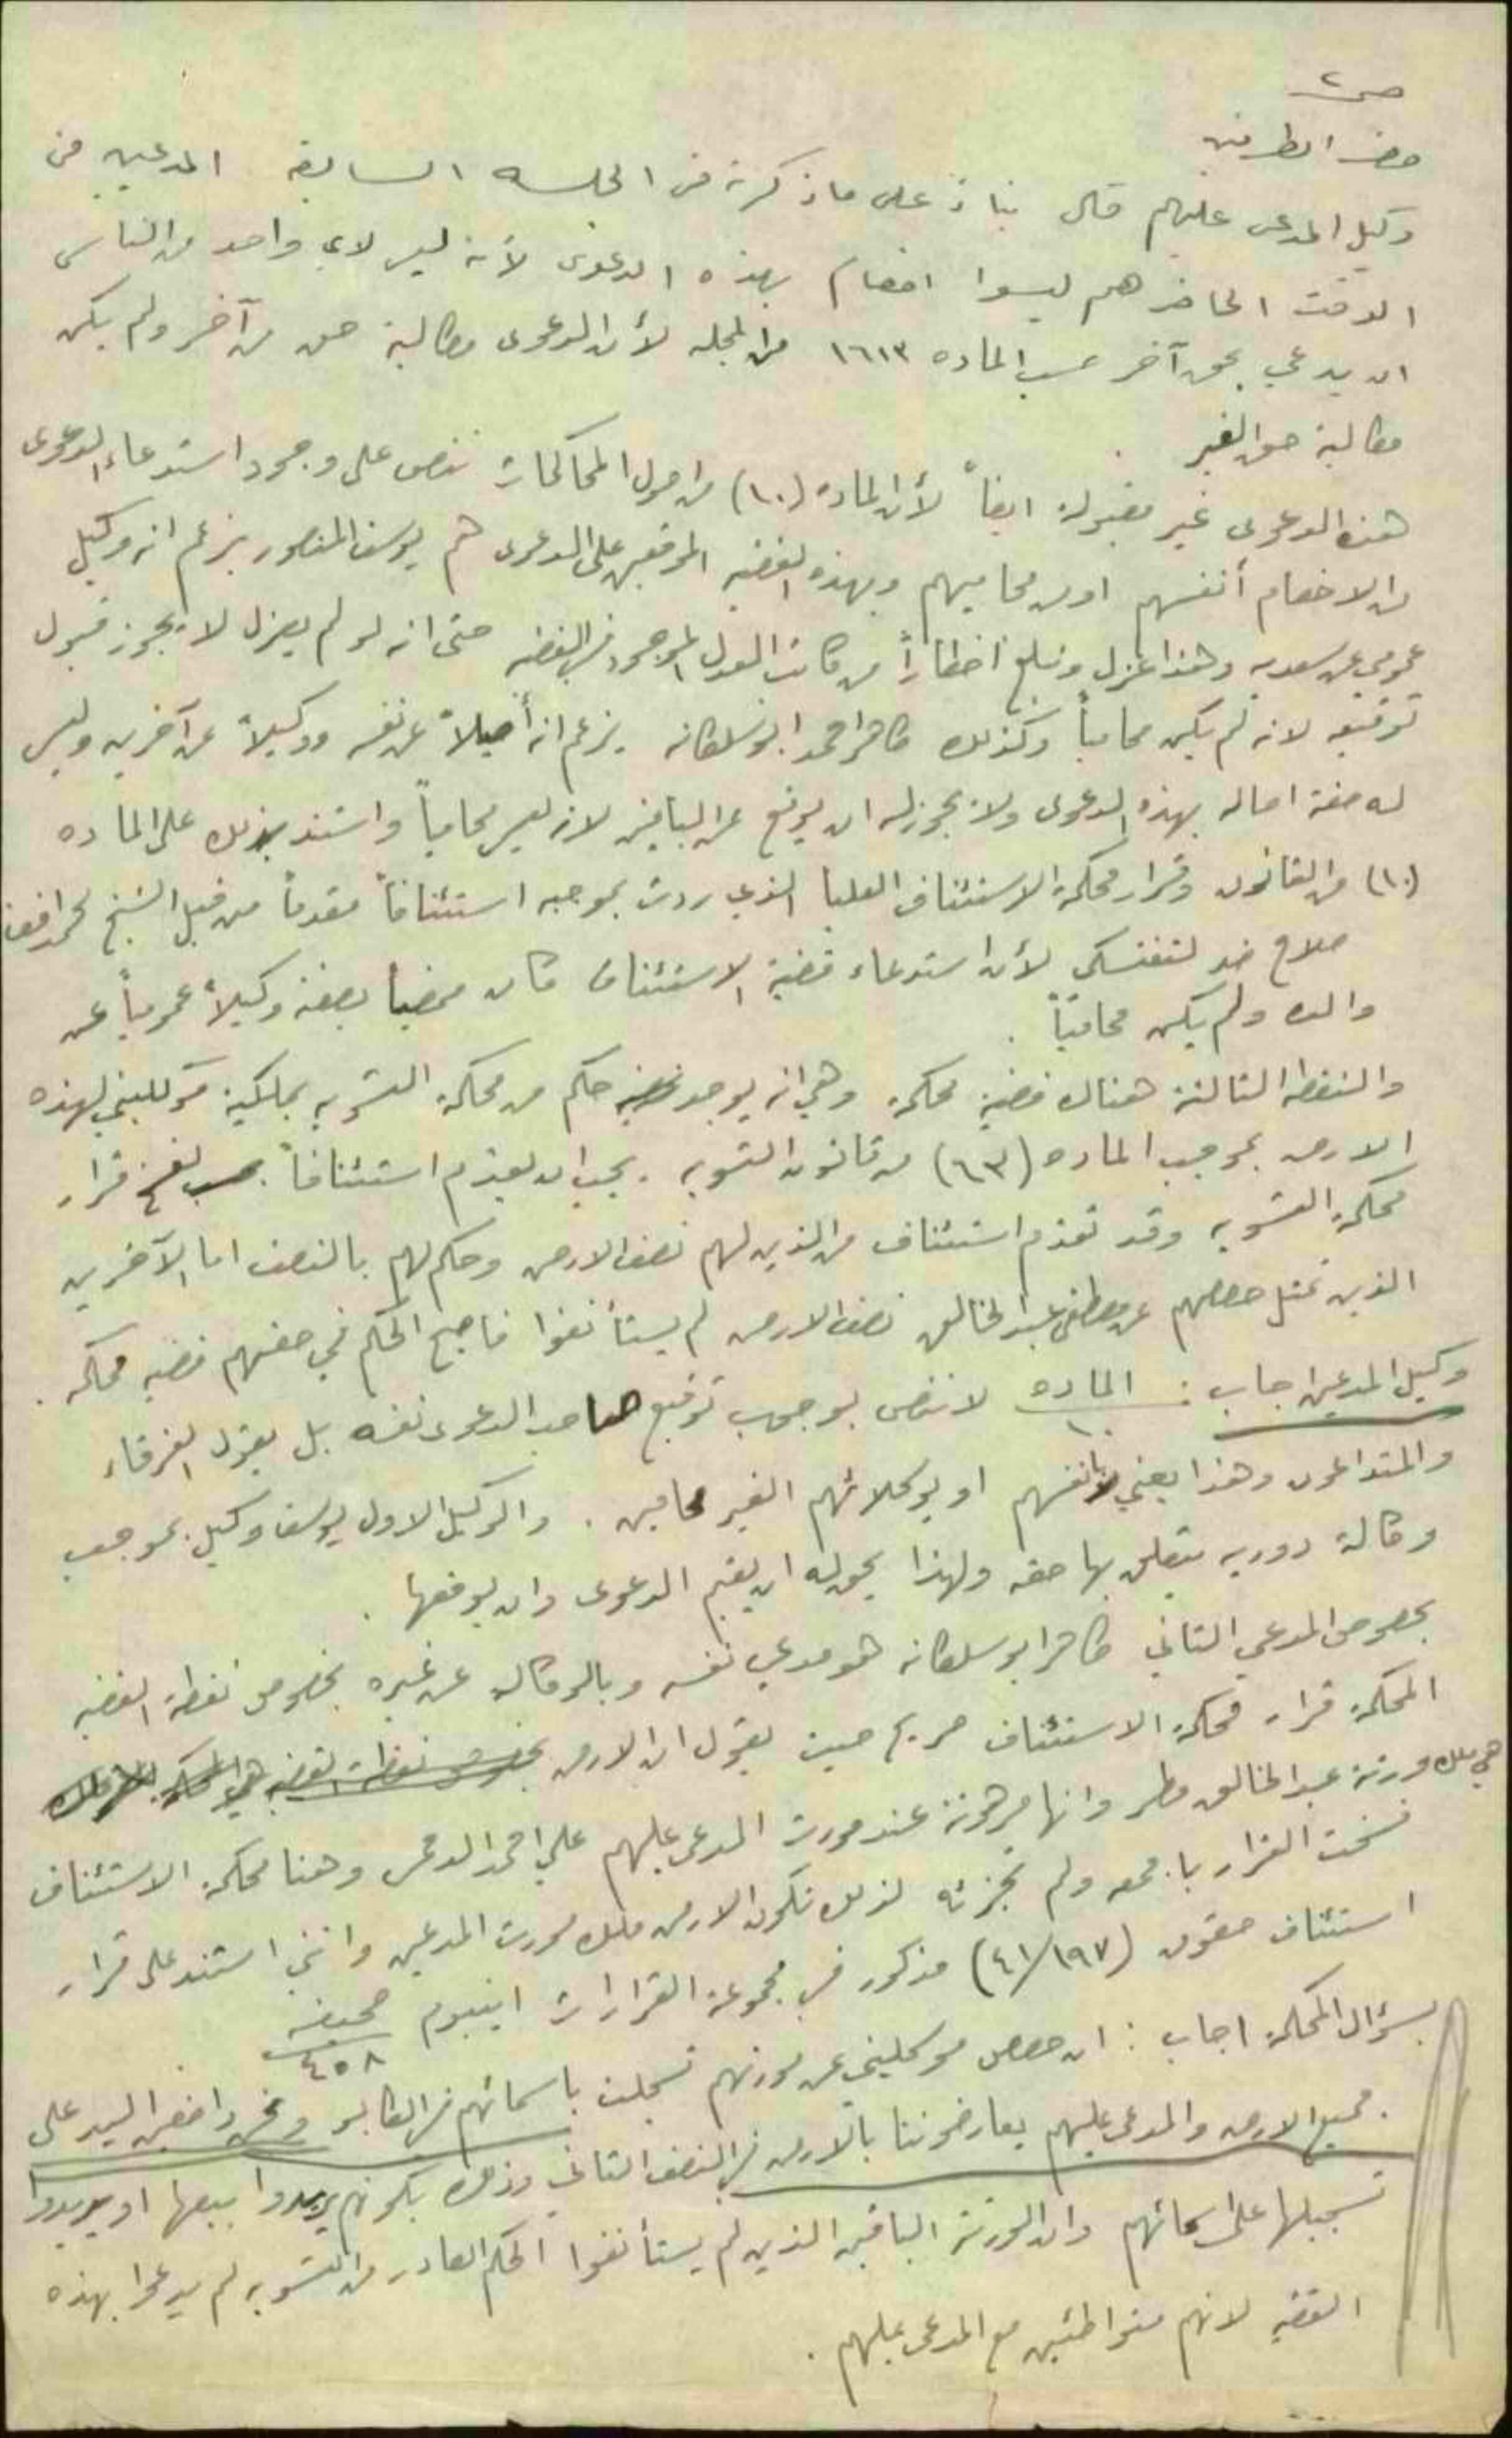 ص ٢
حضر الطرفين
وكيل المدعى عليهم قال بناء على ما ذكرته في الجلسه السابقه المدعين في
الوقت الحاضر هم ليسوا اخصام بهذه الدعوى لأنه ليس لاي واحد من الناس
ان يدعي بحق آخر حسب الماده ١٦١٣ من المجله لأن الدعوى مطالبة حق من آخر ولم يكن
مطالبة حق الغير .
هذه الدعوى غير مقبوله ايضاً لأن الماده (١٠) من اصول المحاكمات تنص على وجود استدعاء الدعوى
من الاخصام أنفسهم او من محاميهم وبهذه القضيه الموقعين على الدعوى هم يوسف المنصور بزعم انه وكيل
عمومي عن سعديه وهذا عزل وتبلغ اخطاراً من كاتب العدل الموجود في القضيه حتى انه لو لم يعزل لا يجوز قبول
توقيعه لانه لم يكن محامياً وكذلك احمد ابو سلطانه يزعم انه أصيلاً عن نفسه ووكيلاً عن آخرين وليس
له صفة اصاله بهذه الدعوى ولا يجوز له ان يوقع عن الباقين لانه ليس محامياً واستند بذلك على الماده
(١٠) من القانون وقرار محكمة الاستئناف العليا الذي ردت بموجبه استئنافاً مقدماً من قبل الشيخ
صلاح ضد لأن استدعاء قضية الاستئناف كان ممضياً بصفته وكيلاً عمومياً عن
والده ولم يكن محامياً .
والنقطه الثالثه هناك قضية محكمه وهي انه يوجد حكم من محكمة التسويه بملكية موكليني لهذه
الارض بموجب الماده (٦٣) من قانون التسويه . يجب ان يقدم استئنافاً لفسخ قرار
محكمة التسويه وقد تقدم استئناف من الذين لهم نصف الارض وحكم لهم بالنصف اما الآخرين
الذين تمثل حصصهم عن مصطفى عبد الخالق نصف الارض لم يستأنفوا فاصبح الحكم في حقهم قضيه محكمه .
وكيل المدعين اجاب : الماده ١٠ لا تنص بوجوب توقيع صاحب الدعوى نفسه بل يقول الفرقاء
والمتداعون وهذا يعني بانفسهم او بوكلائهم الغير محامين . والوكيل الاول يوسف وكيل بموجب
وكالة دوريه متعلق بها حقه ولهذا يحق له ان يقيم الدعوى وان يوقعها .
بخصوص المدعي الثاني ابو سلطانه هو مدعي نفسه وبالوكاله عن غيره بخصوص نقطة القضيه
المحكمة قرار محكمة الاستئناف صريح حيث يقول ان الارض بخصوص نقطة القضيه هي المحكمه
هي ملك ورثة عبد الخالق مطر وانها مرهونة عند مورث المدعى عليهم علي احمد وهنا محكمة الاستئناف
فسخت القرار باجمعه ولم تجزئه لذلك تكون الارض ملك مورث المدعين وانني استند على قرار
استئناف حقوق (٤١/١٩٧) مذكور في مجموعة القرارات صحيفه ٤٥٨
بسؤال المحكمة اجاب : ان حصص موكليني عن مورثهم تسجلت باسمائهم في الطابو ونحن واضعين اليد على
جميع الارض والمدعى عليهم يعارضوننا بالارض في النصف الثاني وذلك بكونهم يريدوا بيعها او يريدوا
تسجيلها على اسمائهم وان الورثة الباقين الذين لم يستأنفوا الحكم الصادر من التسويه لم يدعوا بهذه
القضيه لانهم متواطئين مع المدعى عليهم .